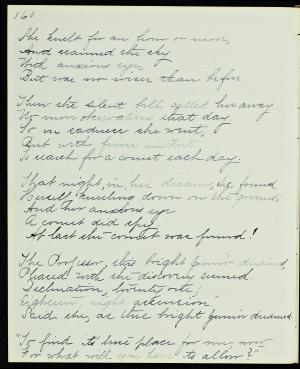 160
She knelt for an hour or more,
And scanned the sky
With anxious eyes,
But was no wiser than before.
Then the silent bell called her away
No more observations that day
So in sadness she went,
But with firm intent
To search for a comet each day.
That night, in her dreams, she found
Herself kneeling down on the ground,
And her anxious eye
A comet did spy
At last the comet was found!
The Professor, this bright Junior dreamed,
Pleased with the discovery seemed
"Declination, twenty
Eighteen, right ascension"
Said she, as this bright Junior dreamed.
"To find its true place for me, now
For what will you have to allow?"